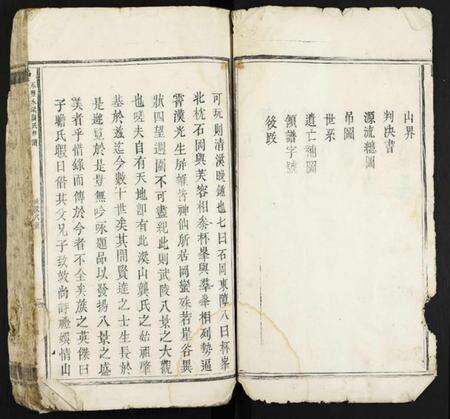 山界
判決書
源流總圖
吊圖
世系
遺亡總圖
領譜字號
後跋
可玩則清溪 也七曰石岡東障八曰杯峯
北枕石岡與芙容相 杯峯與羣峯相列勢逼
霄漢光生屏 皆神仙所居岡巒殊若星谷異
狀四望迴圍不可盡紀此則武陵八景之大觀
也嗟夫自有天地卽有此溪山龔氏之始祖肇
基於茲迄今數十世矣其間賢達之士生長於
是遊 於是豈無吟咏題品以發揚八景之盛
美者乎惜緣而傳於今者不全矣族之英傑曰
子 氏暇日偕其父兄子姪 尚詩 娛情山